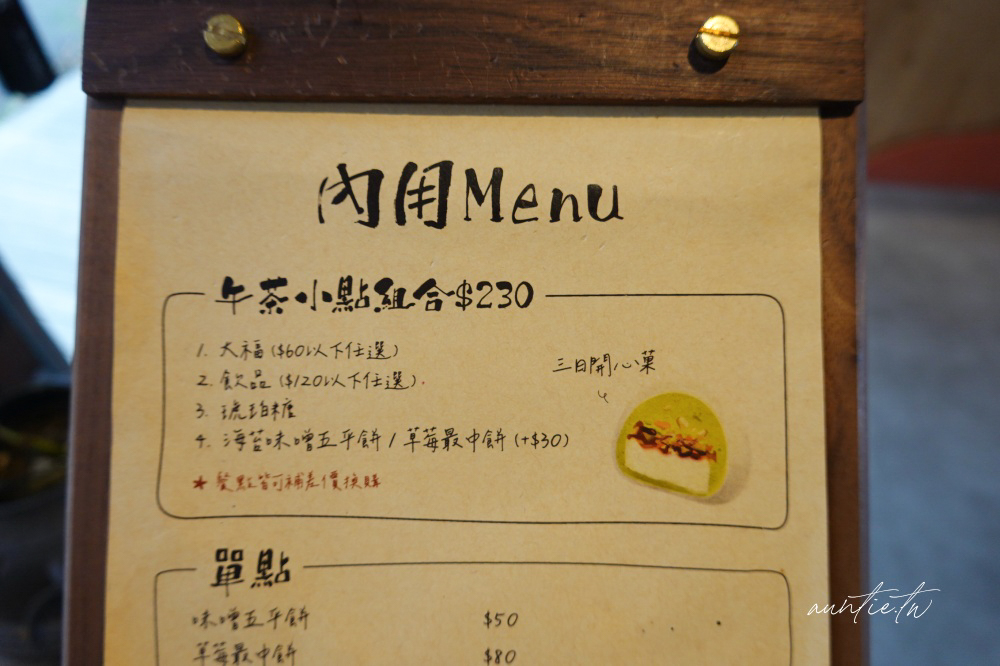 內用Menu
午茶小點組合$230
1. 大福($60以下任選)
2. 飲品($120以下任選).
3. 琥珀糖
4. 海苔味噌五平餅/草莓最中餅(+$30)
★餐點皆可補差價換購
三日開心菓
單點
味噌五平餅 $50
草莓最中餅 $80
auntie.tw